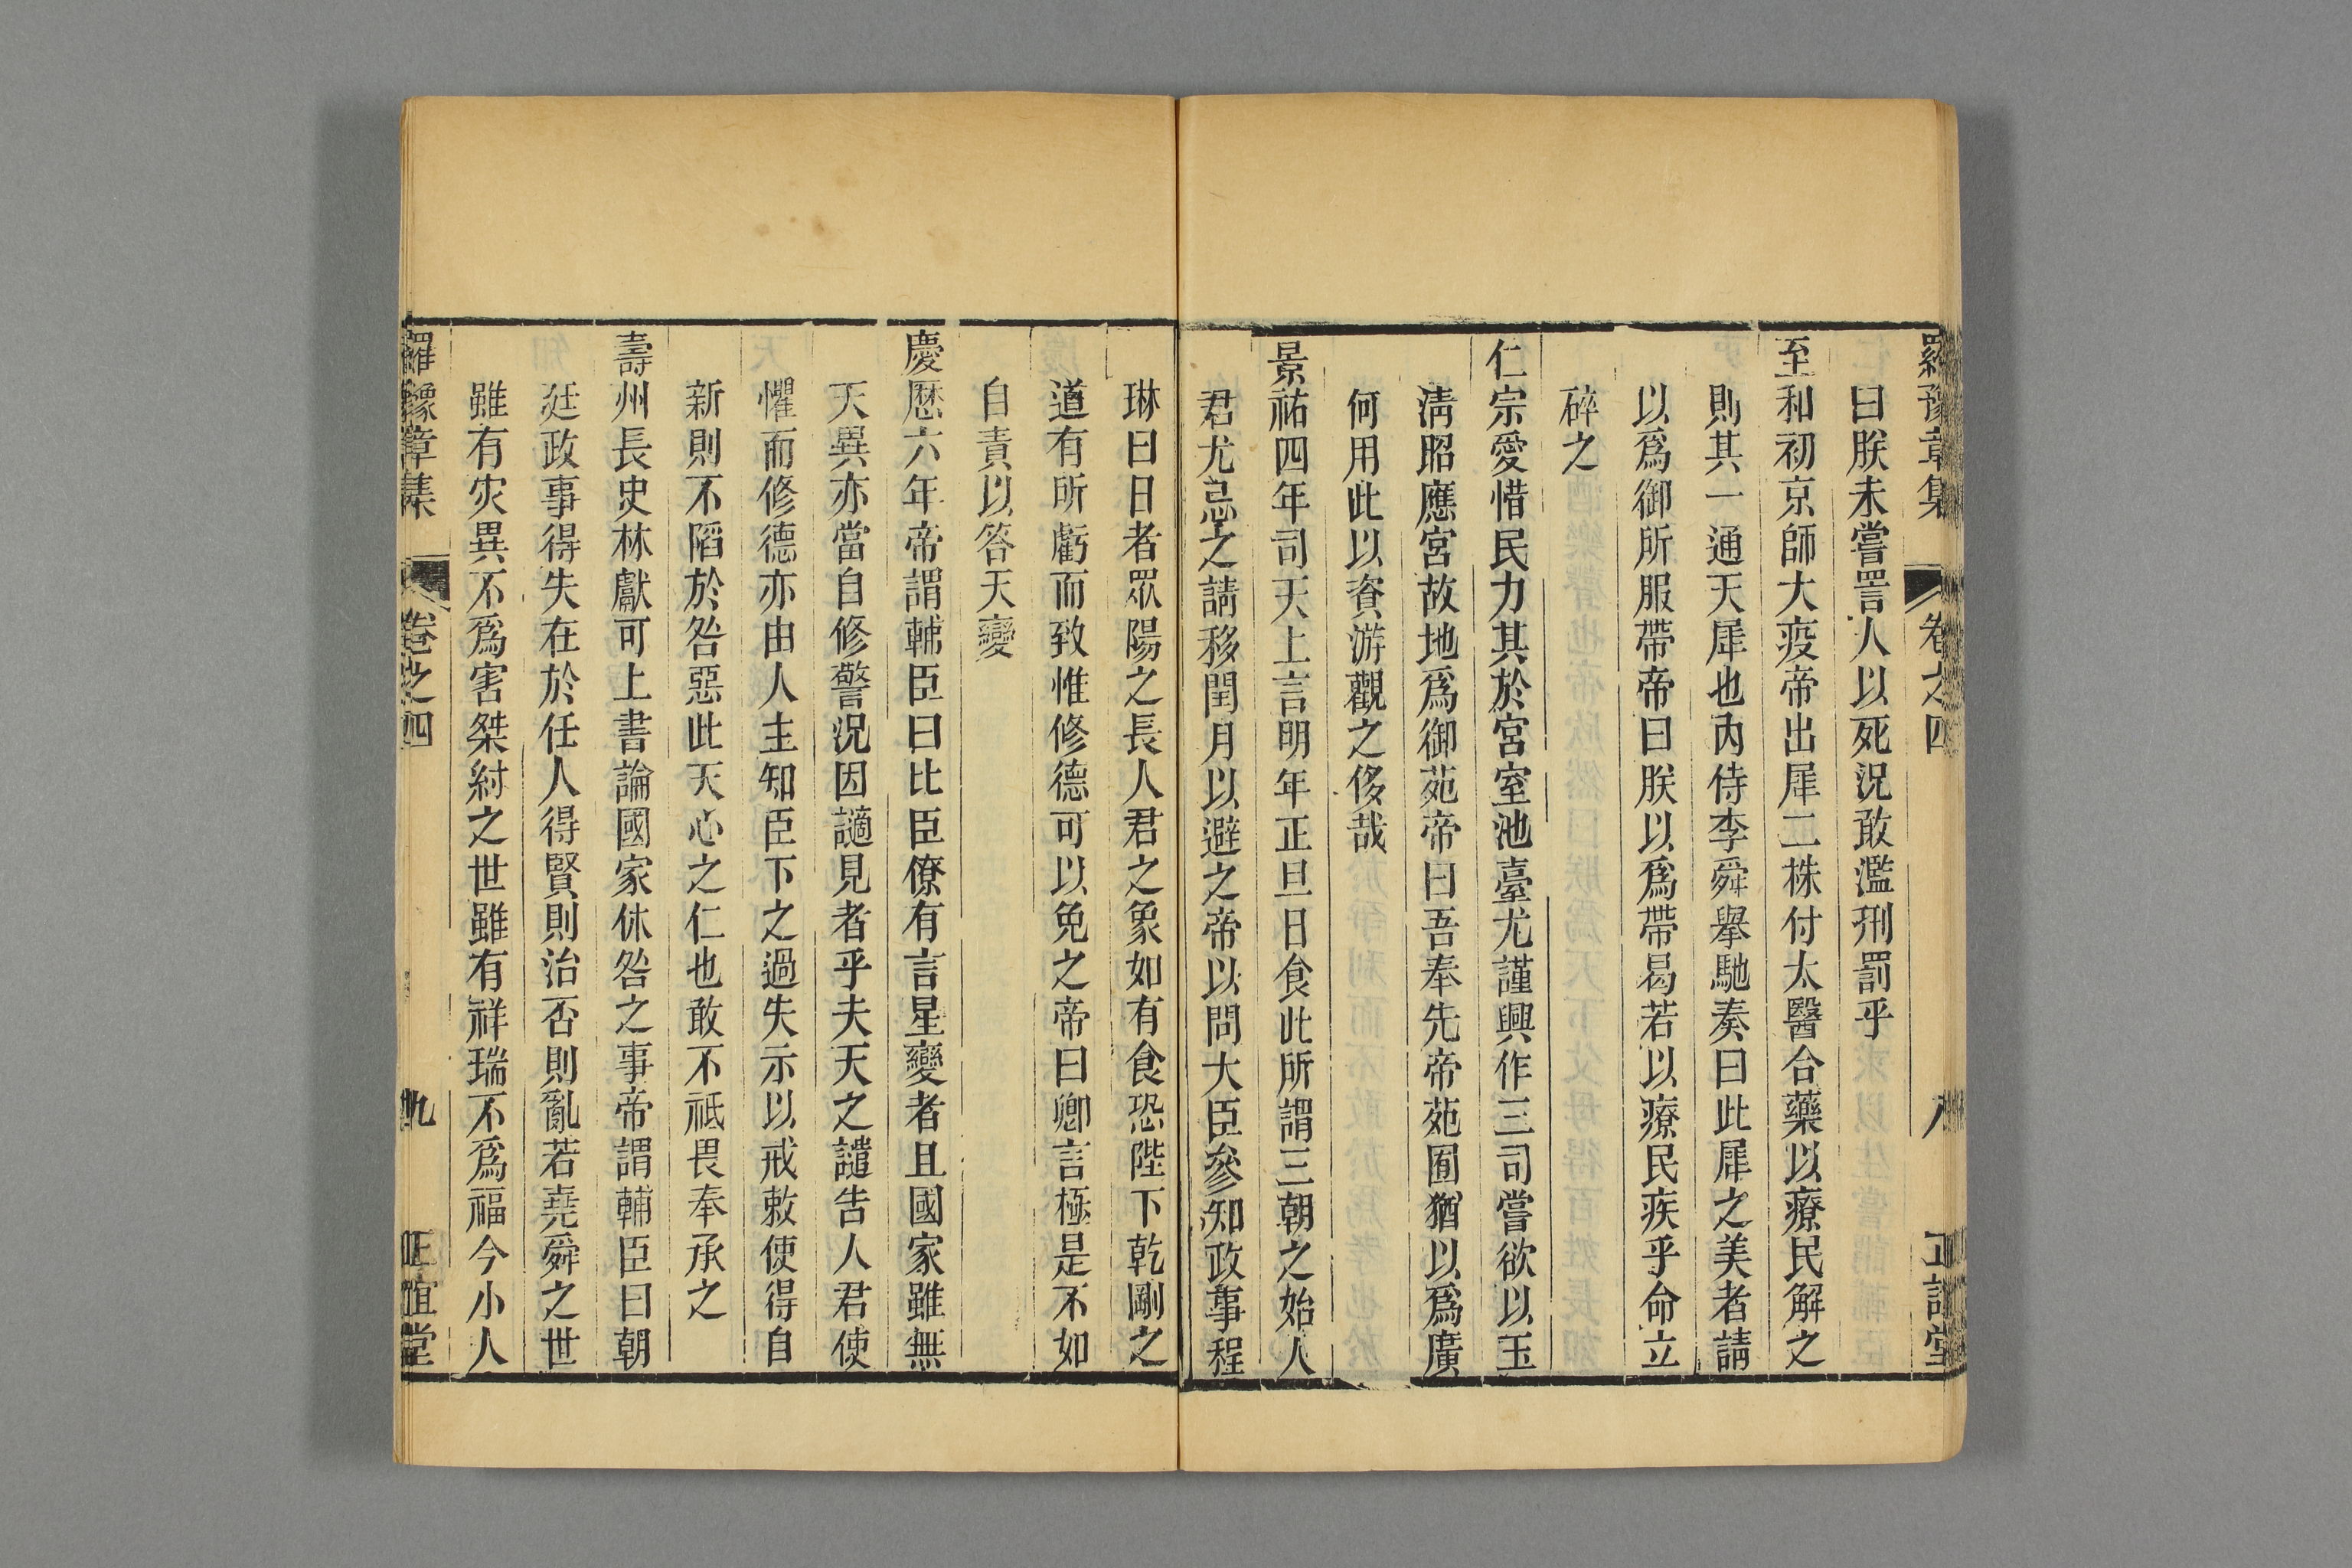 羅豫章集 卷之四 八 正誼堂
曰朕未嘗詈人以死況敢濫刑罰乎
至和初京師大疫帝出犀二株付太醫合藥以療民解之
則其一通天犀也內侍李舜舉馳奏曰此犀之美者請
以爲御所服帶帝曰朕以爲帶曷若以療民疾乎命立
碎之
仁宗愛惜民力其於宮室池臺尤謹興作三司嘗欲以玉
淸昭應宮故地爲御苑帝曰吾奉先帝苑囿猶以爲廣
何用此以資游觀之侈哉
景祐四年司天上言明年正旦日食此所謂三朝之始人
君尤忌之請移閏月以避之帝以問大臣參知政事程
琳曰日者眾陽之長人君之象如有食恐陛下乾剛之
道有所虧而致惟修德可以免之帝曰卿言極是不如
自責以答天變
慶歷六年帝謂輔臣曰比臣僚有言星變者且國家雖無
天異亦當自修警況因讁見者乎夫天之譴告人君使
懼而修德亦由人主知臣下之過失示以戒敕使得自
新則不䧟於咎惡此天心之仁也敢不祗畏奉承之
壽州長史林獻可上書論國家休咎之事帝謂輔臣曰朝
廷政事得失在於任人得賢則治否則亂若堯舜之世
雖有灾異不爲害桀紂之世雖有祥瑞不爲福今小人
羅豫章集 卷之四 九 正誼堂